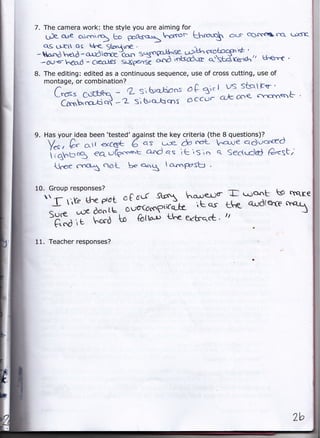 7. The camera work: the style you are aiming for
we are aiming to portray horror through our camera work
as well as the storyline.
- Hand held - audience can sympathise with protagonist.
- over head - creates suspense and introduces a "stalkerish" theme.
8. The editing: edited as a continuous sequence, use of cross cutting, use of
montage, or combination?
Cross cutting - 2 situations of girl vs stalker.
Combination? - 2 situations occur at one moment.
9. Has your idea been 'tested' against the key criteria (the 8 questions)?
Yes, for all except 6 as we do not have advanced
lighting equipment and as it is in a secluded forest,
there may not be any lampposts.
10. Group responses?
"I like the plot of our story however I want to make
sure we don't overcomplicate it as the audience may
find it hard to follow the extract."
11. Teacher responses?
2b